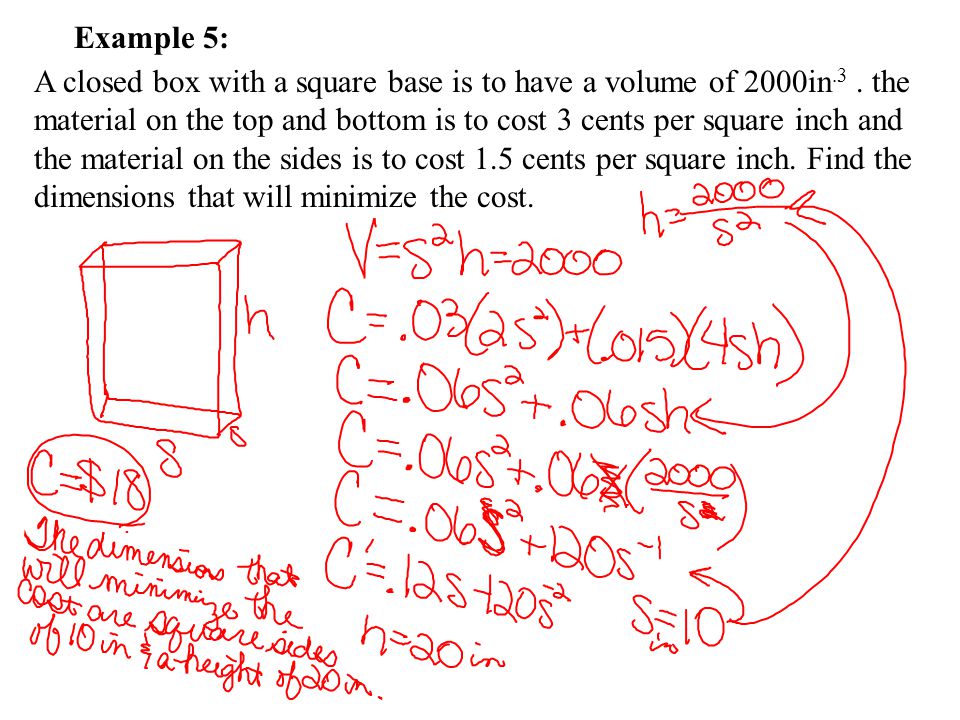 Example 5:
A closed box with a square base is to have a volume of 2000in.³ . the
material on the top and bottom is to cost 3 cents per square inch and
the material on the sides is to cost 1.5 cents per square inch. Find the
dimensions that will minimize the cost.
h=2000/s²
V=s²h=2000
h
s
C=.03(2s²)+(.015)(4sh)
C=.06s²+.06sh
C=.06s²+.06s(2000/s²)
C=.06s²+120s⁻¹
C'=.12s-120s⁻²
s=10 in
h=20 in
C=$18
The dimensions that
will minimize the
cost are square sides
of 10 in & a height of 20 in.